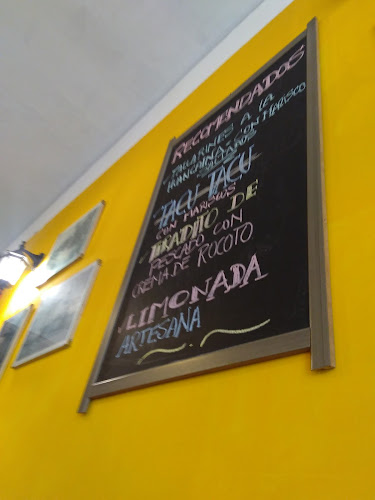 RECOMENDADOS
TALLARINES A LA
HUANCAINA CON MARISCO
TACU TACU
CON MARISCOS
TIRADITO DE
PESCADO CON
CREMA DE ROCOTO
LIMONADA
ARTESANA